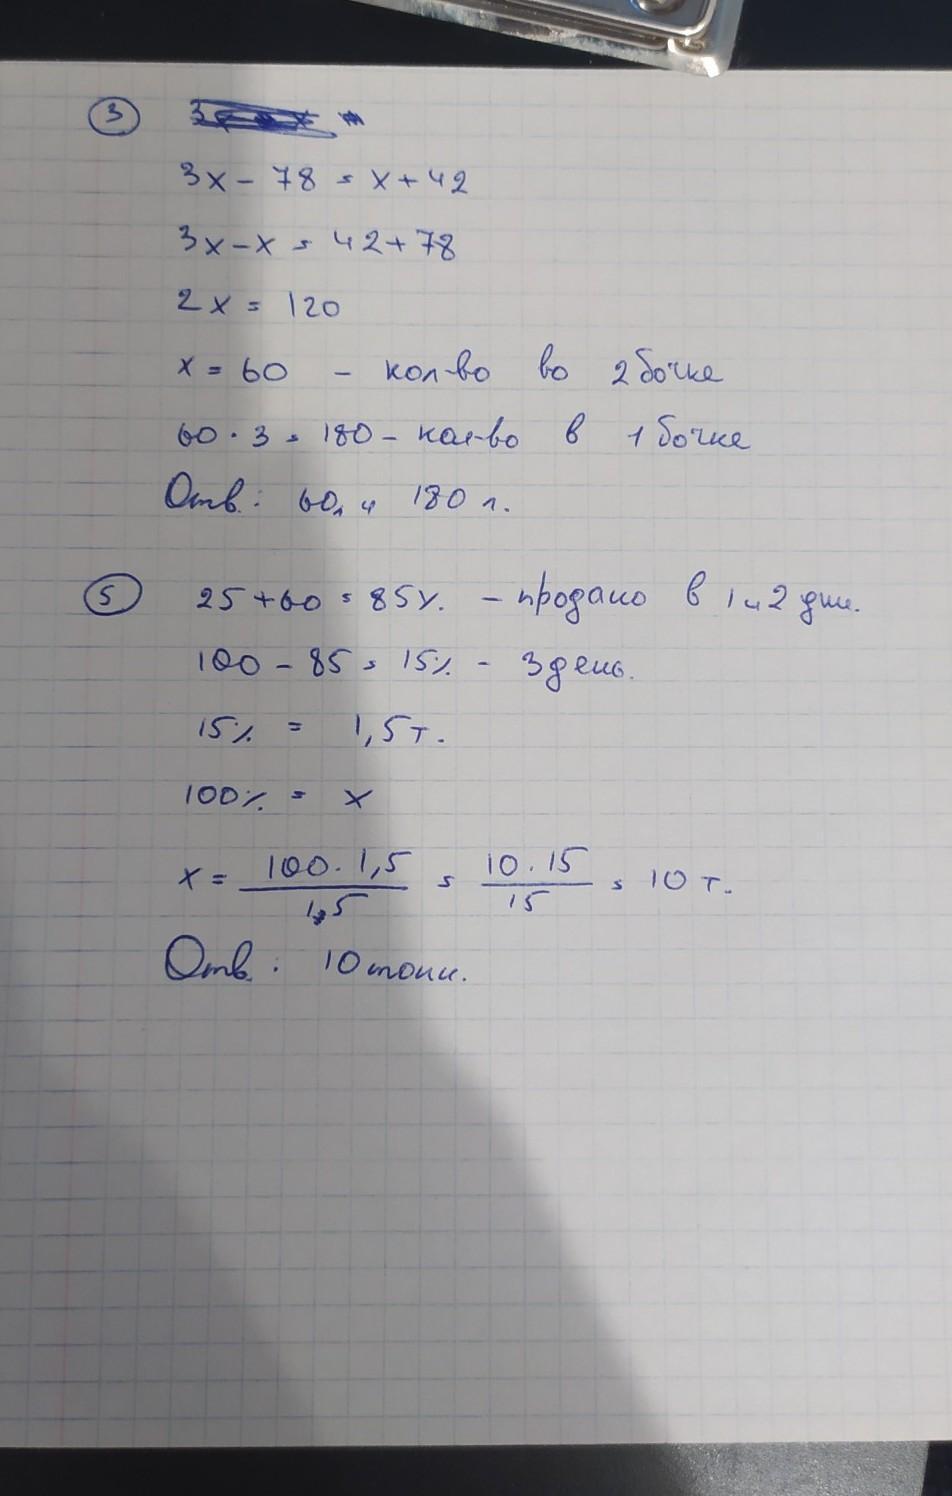 3
3x - 78 = x + 42
3x - x = 42 + 78
2x = 120
x = 60 - кол-во во 2 бочке
60 · 3 = 180 - кол-во в 1 бочке
Отв: 60л и 180 л.
5 25 + 60 = 85% - продано в 1 и 2 дни.
100 - 85 = 15% - 3 день.
15% = 1,5 т.
100% = x
x = 100 · 1,5 / 15 = 10 · 15 / 15 = 10 т.
Отв: 10 тонн.